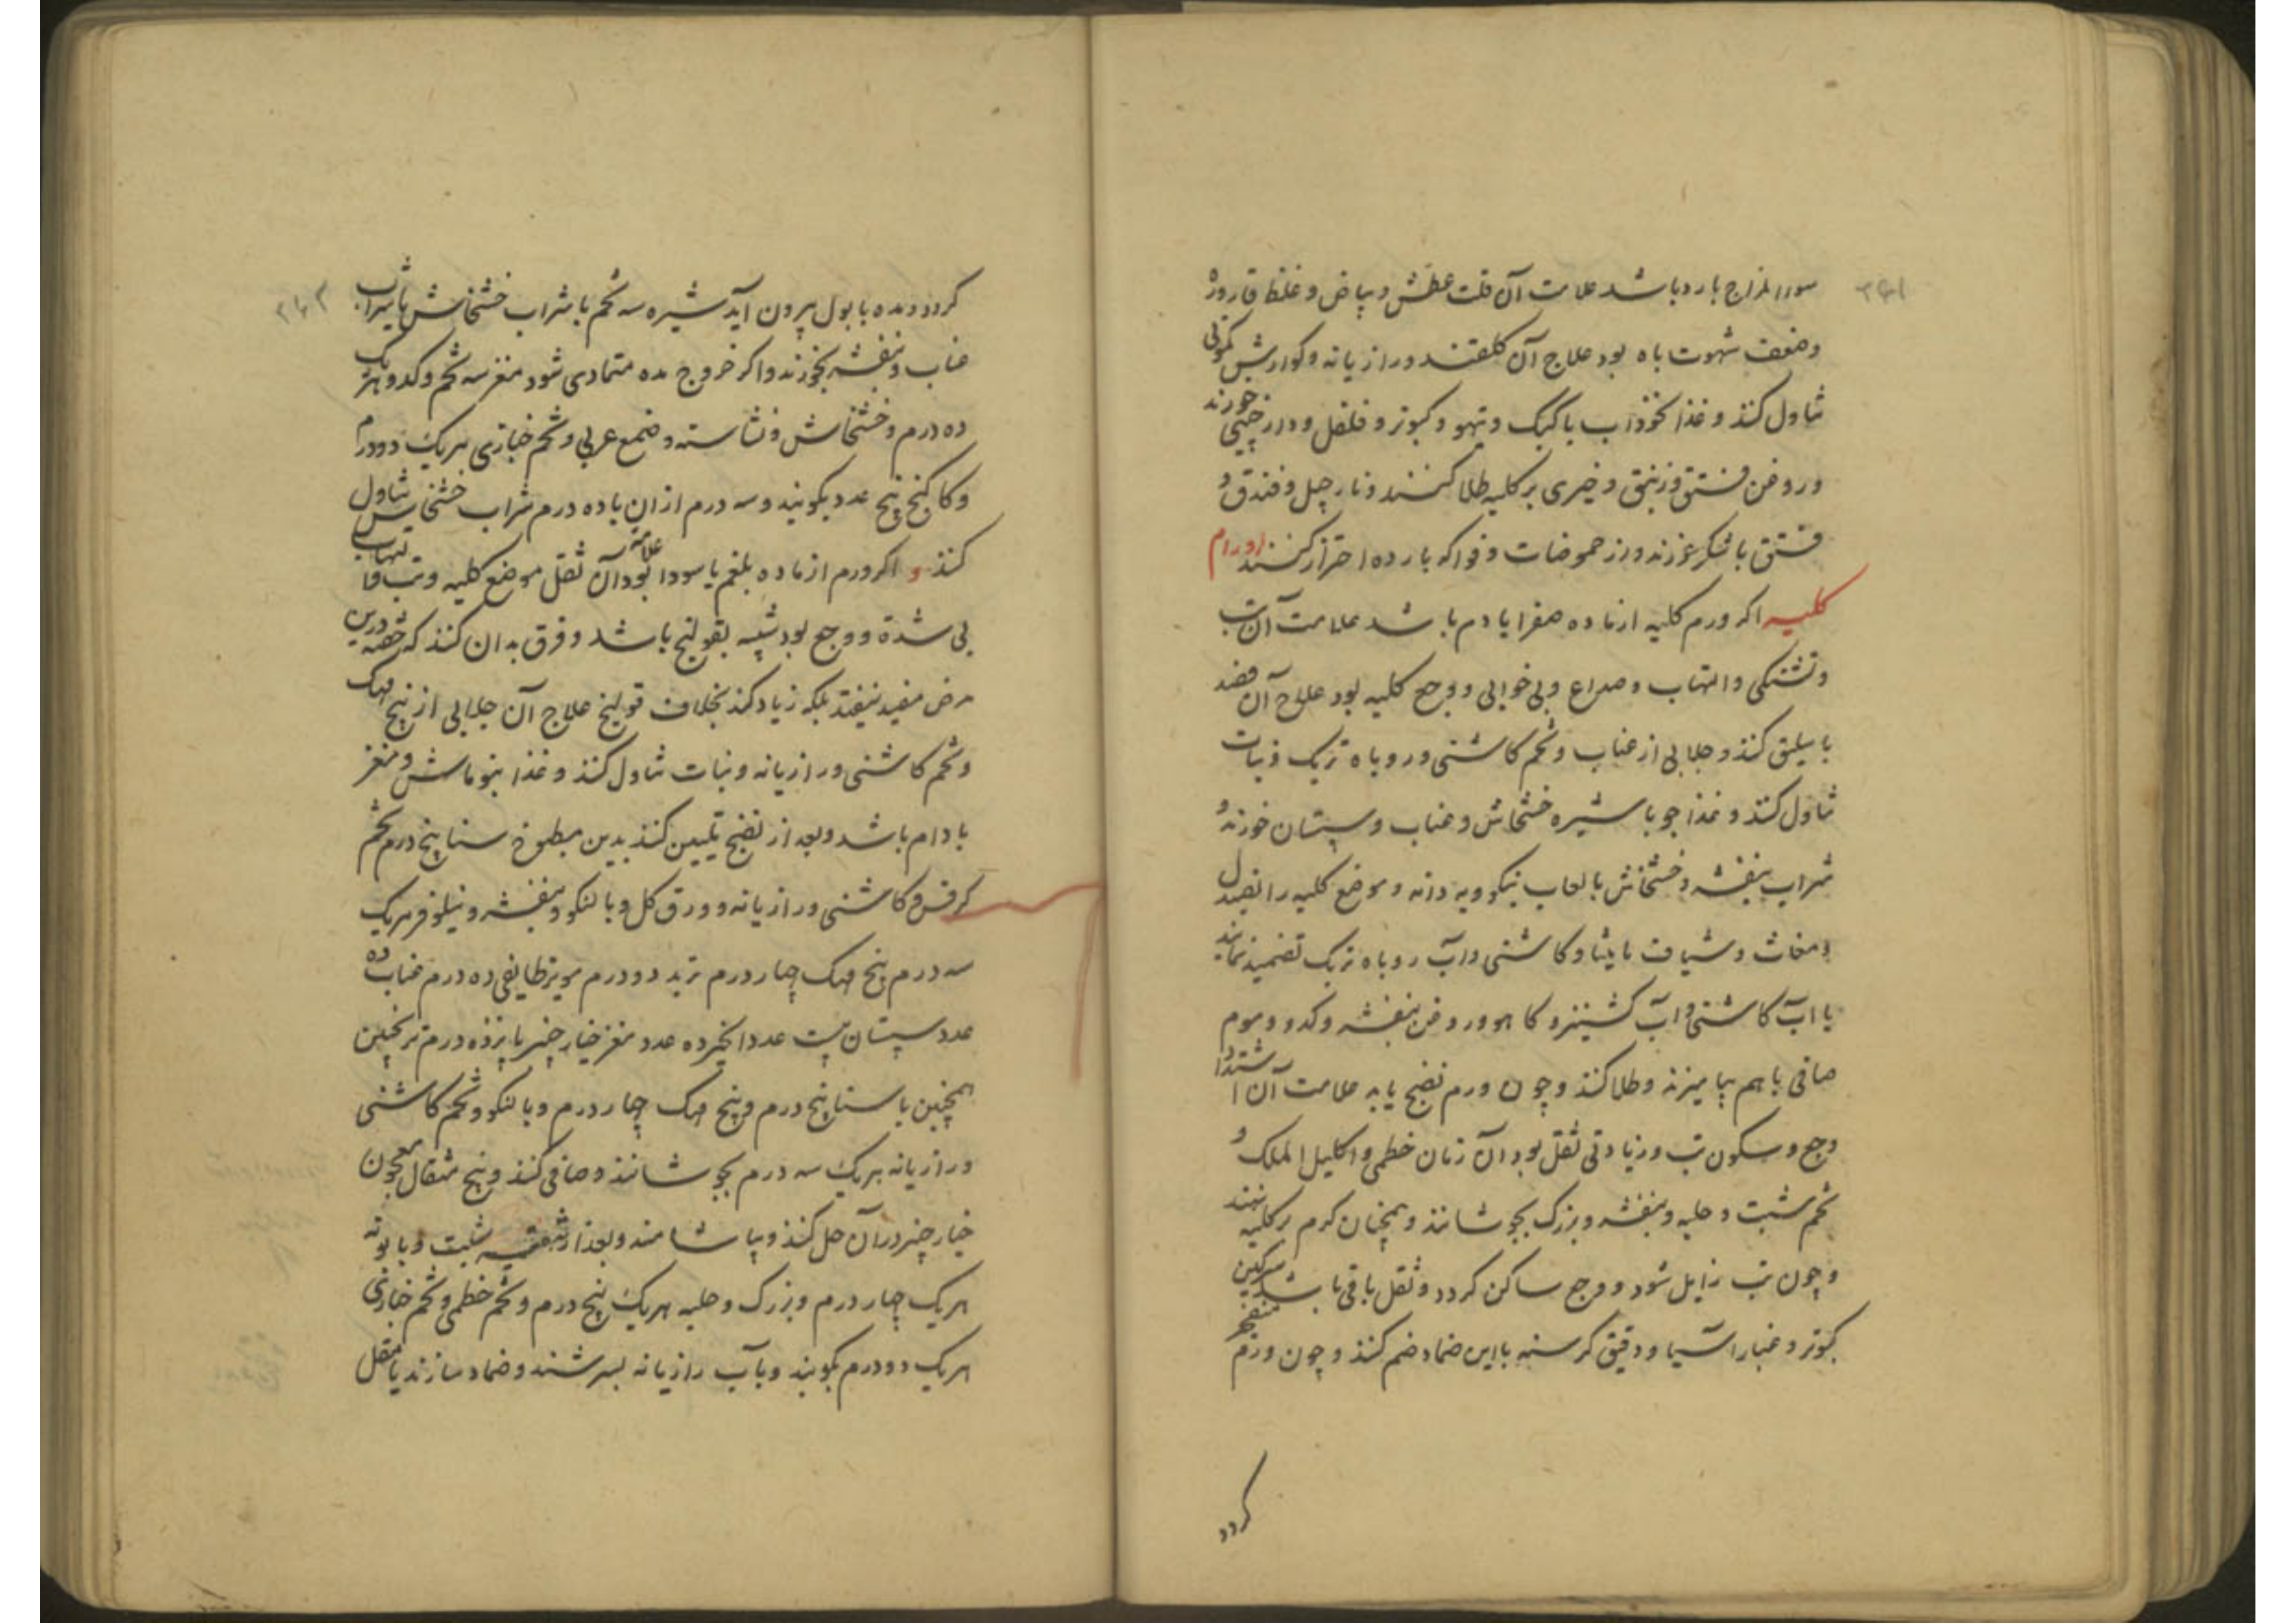 ۳۴۱
سوء المزاج بارد باشد علامت آن قلت عطش و بیاض و غلظ قاروره
وضعف شهوت باه بود علاج آن کلقند و رازیانه و کوارش کمونی
تناول کنند و غذا نخوداب با کبک و تیهو و کبوتر و فلفل و دارچینی خورند
و روغن فستق و زنبق و خیری بر کلیه طلا کنند و نارجیل و فندق و
فستق با شکر خورند و از حموضات و فواکه بارده احتراز کنند اورام
کلیه اکر ورم کلیه از ماده صفرا یا دم باشد علامت آن تب
و تشنکی و التهاب و صداع و بی خوابی و وجع کلیه بود علاج آن فصد
باسلیق کنند و جلابی از عناب و تخم کاشنی و روباه تربک و نبات
تناول کنند و غذا جو با شیره خشخاش و عناب و سپستان خورند و
شراب بنفشه و خشخاش با لعاب نیکو و به دانه و موضع کلیه را بصندل
و مغاث و شیاف مامیثا و کاشنی و آب روباه تربک تضمید نمایند
یا آب کاشنی و آب کشنیز و کاهو و روغن بنفشه و کدو و موم
صافی با هم بیامیزند و طلا کنند و چون ورم نضج یابد علامت آن اشتداد
وجع و سکون تب و زیادتی ثقل بود آن زمان خطمی و اکلیل الملک و
تخم شبت و حلبه و بنفشه و بزرک بجوشانند و همچنان کرم بر کلیه نهند
و چون تب زایل شود و وجع ساکن کردد و ثقل باقی باشد سرکین
کبوتر و غبار آسیا و دقیق کرسنه با این ضماد ضم کنند و چون ورم منفجر
کردد
۳۴۲
کردد و مده با بول بیرون آید شیره سه تخم با شراب خشخاش یا شراب
عناب و بنفشه بخورند و اکر خروج مده متمادی شود مغز سه تخم و کدو هر یک
ده درم و خشخاش و نشاسته و صمغ عربی و تخم خبازی هر یک دو درم
و کاکنج پنج عدد بکوبند و سه درم از ان با ده درم شراب خشخاش تناول
کنند و اکر ورم از ماده بلغم یا سودا بود علامت آن ثقل موضع کلیه و تب و التهاب
بی شدة و وجع بود شبیه بقولنج باشد و فرق بدان کنند که حقنه درین
مرض مفید نیفتد بلکه زیاد کند بخلاف قولنج علاج آن جلابی از بیخ مهک
و تخم کاشنی و رازیانه و نبات تناول کنند و غذا بنوماش و مغز
بادام باشد و بعد از نضج تلیین کنند بدین مطبوخ سنا پنج درم تخم
کرفس و کاشنی و رازیانه و ورق کل و بالنکو و بنفشه و نیلوفر هر یک
سه درم بیخ مهک چهار درم تربد دو درم مویز طایفی ده درم عناب ده
عدد سپستان بیست عدد انجیر ده عدد مغز خیار چنبر پانزده درم ترنجبین
همچنین یا سنا پنج درم و بیخ مهک چهار درم و بالنکو و تخم کاشنی
و رازیانه هر یک سه درم بجوشانند و صافی کنند و پنج مثقال معجون
خیار چنبر در آن حل کنند و بیاشامند و بعد از تنقیه شبت و بابونه
هر یک چهار درم و بزرک و حلبه هر یک پنج درم و تخم خطمی و تخم خبازی
هر یک دو درم بکوبند و با آب رازیانه بسرشند و ضماد سازند یا مقل